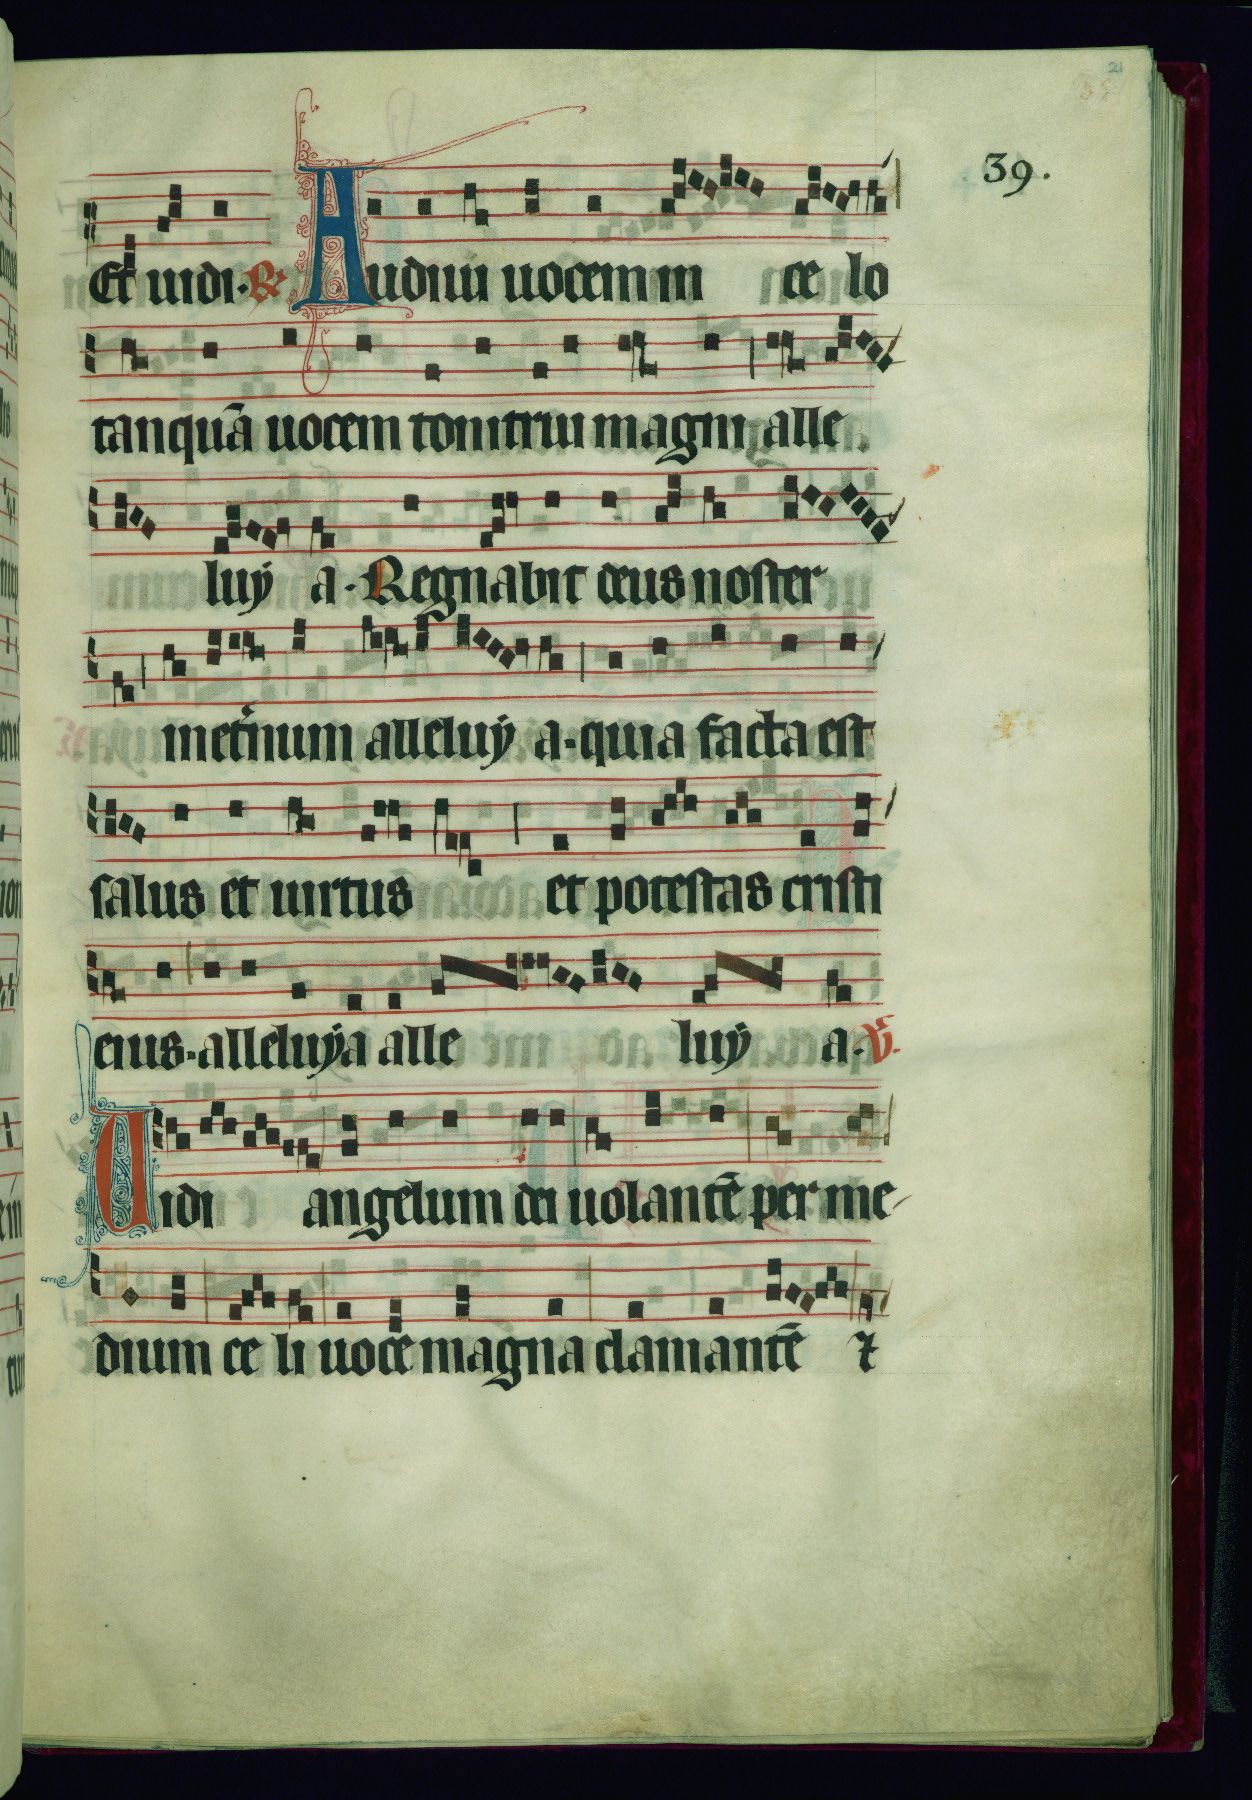 21
39.
Et uidi. R Audiui uocem in ce lo
tanquā uocem tonitruu magni alle
luÿ a. Regnabit deus noster
inet̉num alleluÿ a. quia facta est
salus et uirtus et potestas cristi
eius. alleluÿa alle luÿ a. V.
Uidi angelum dei uolantē per me
dium ce li uocē magna clamantē ⁊